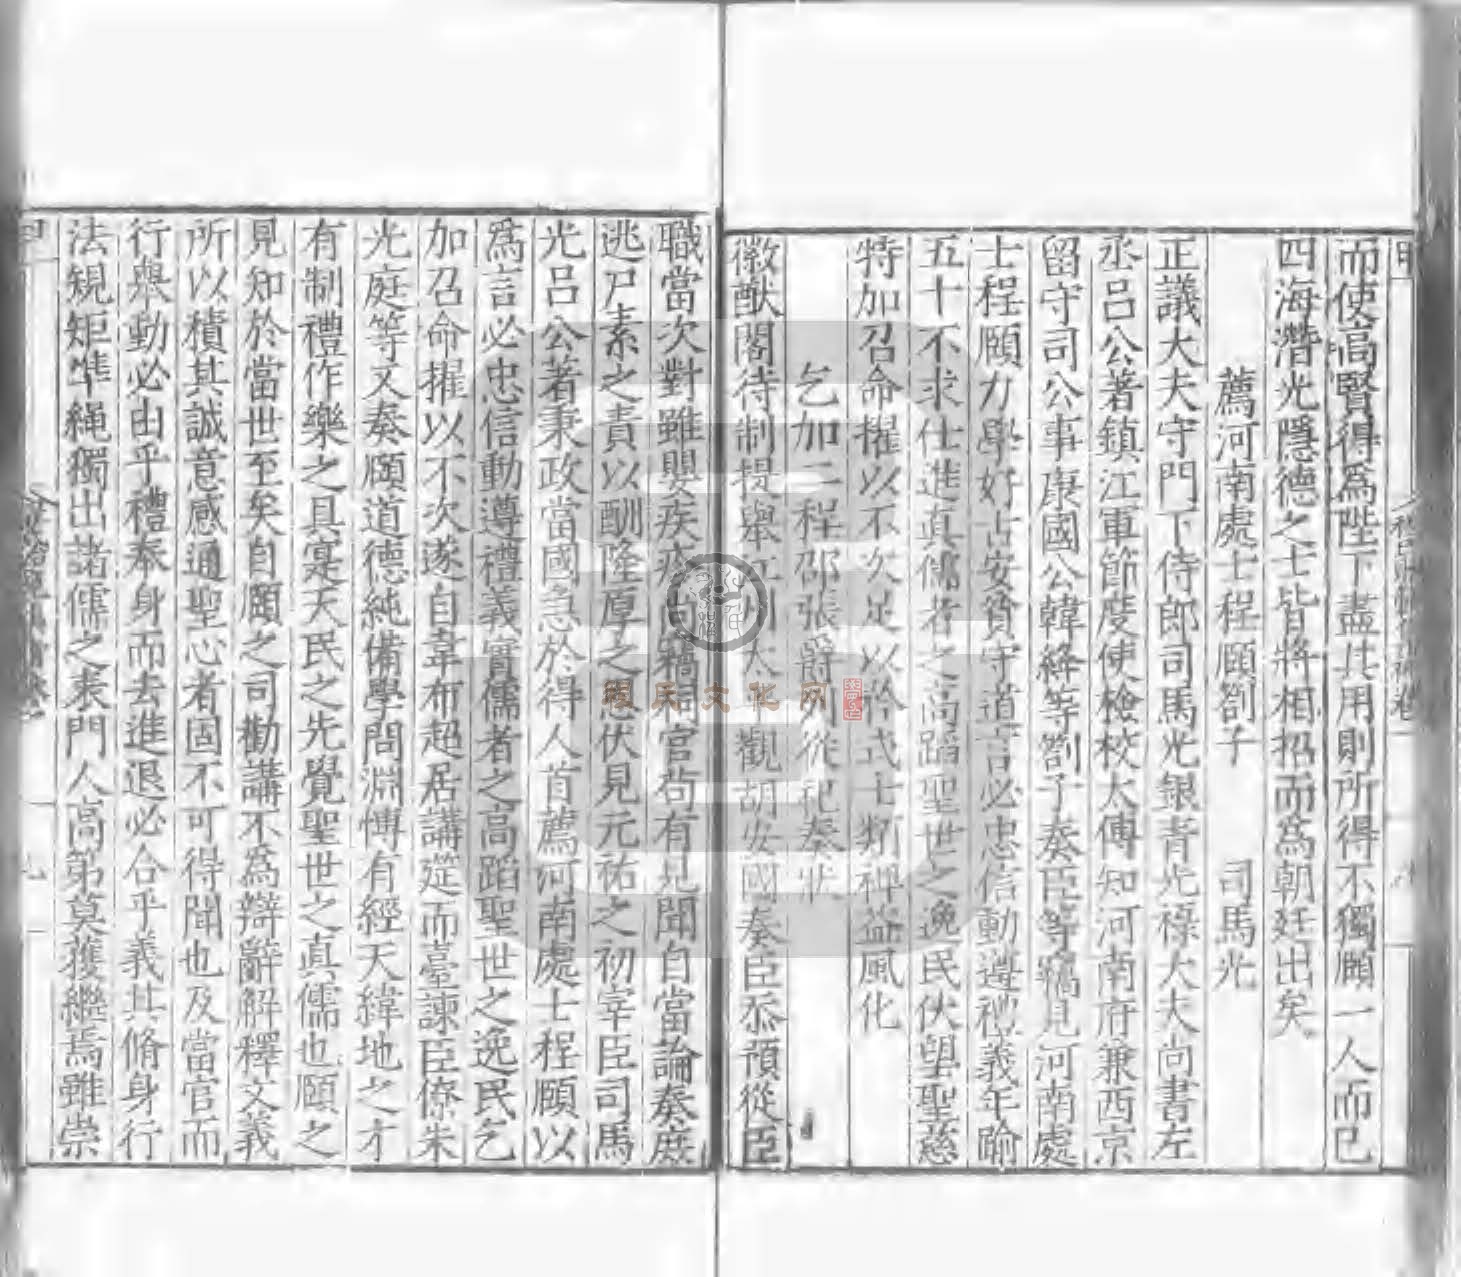 而使高賢得爲陛下盡其用則所得不獨頤一人而已
四海潛光隱德之士皆將相招而爲朝廷出矣
薦河南處士程頤劄子 司馬光
正議大夫守門下侍郎司馬光銀青光祿大夫尚書左
丞呂公著鎮江軍節度使檢校太傅知河南府兼西京
留守司公事康國公韓絳等劄子奏臣等竊見河南處
士程頤力學好古安貧守道言必忠信動遵禮義年踰
五十不求仕進真儒者之高蹈聖世之逸民伏望聖慈
特加召命擢以不次足以矜式士類裨益風化
乞加二程邵張爵列從祀奏狀
徽猷閣待制提舉江州太平觀胡安國奏臣忝預從臣
職當次對雖嬰疾病自竊祠官苟有見聞自當論奏庶
逃尸素之責以酬隆厚之恩伏見元祐之初宰臣司馬
光呂公著秉政當國急於得人首薦河南處士程頤以
爲言必忠信動遵禮義實儒者之高蹈聖世之逸民乞
加召命擢以不次遂自韋布超居講筵而臺諫臣僚朱
光庭等又奏頤道德純備學問淵博有經天緯地之才
有制禮作樂之具寔天民之先覺聖世之真儒也頤之
見知於當世至矣自頤之司勸講不爲辯辭解釋文義
所以積其誠意感通聖心者固不可得聞也及當官而
行舉動必由乎禮奉身而去進退必合乎義其脩身行
法規矩準繩獨出諸儒之表門人高弟莫獲繼焉雖崇
程氏文化网